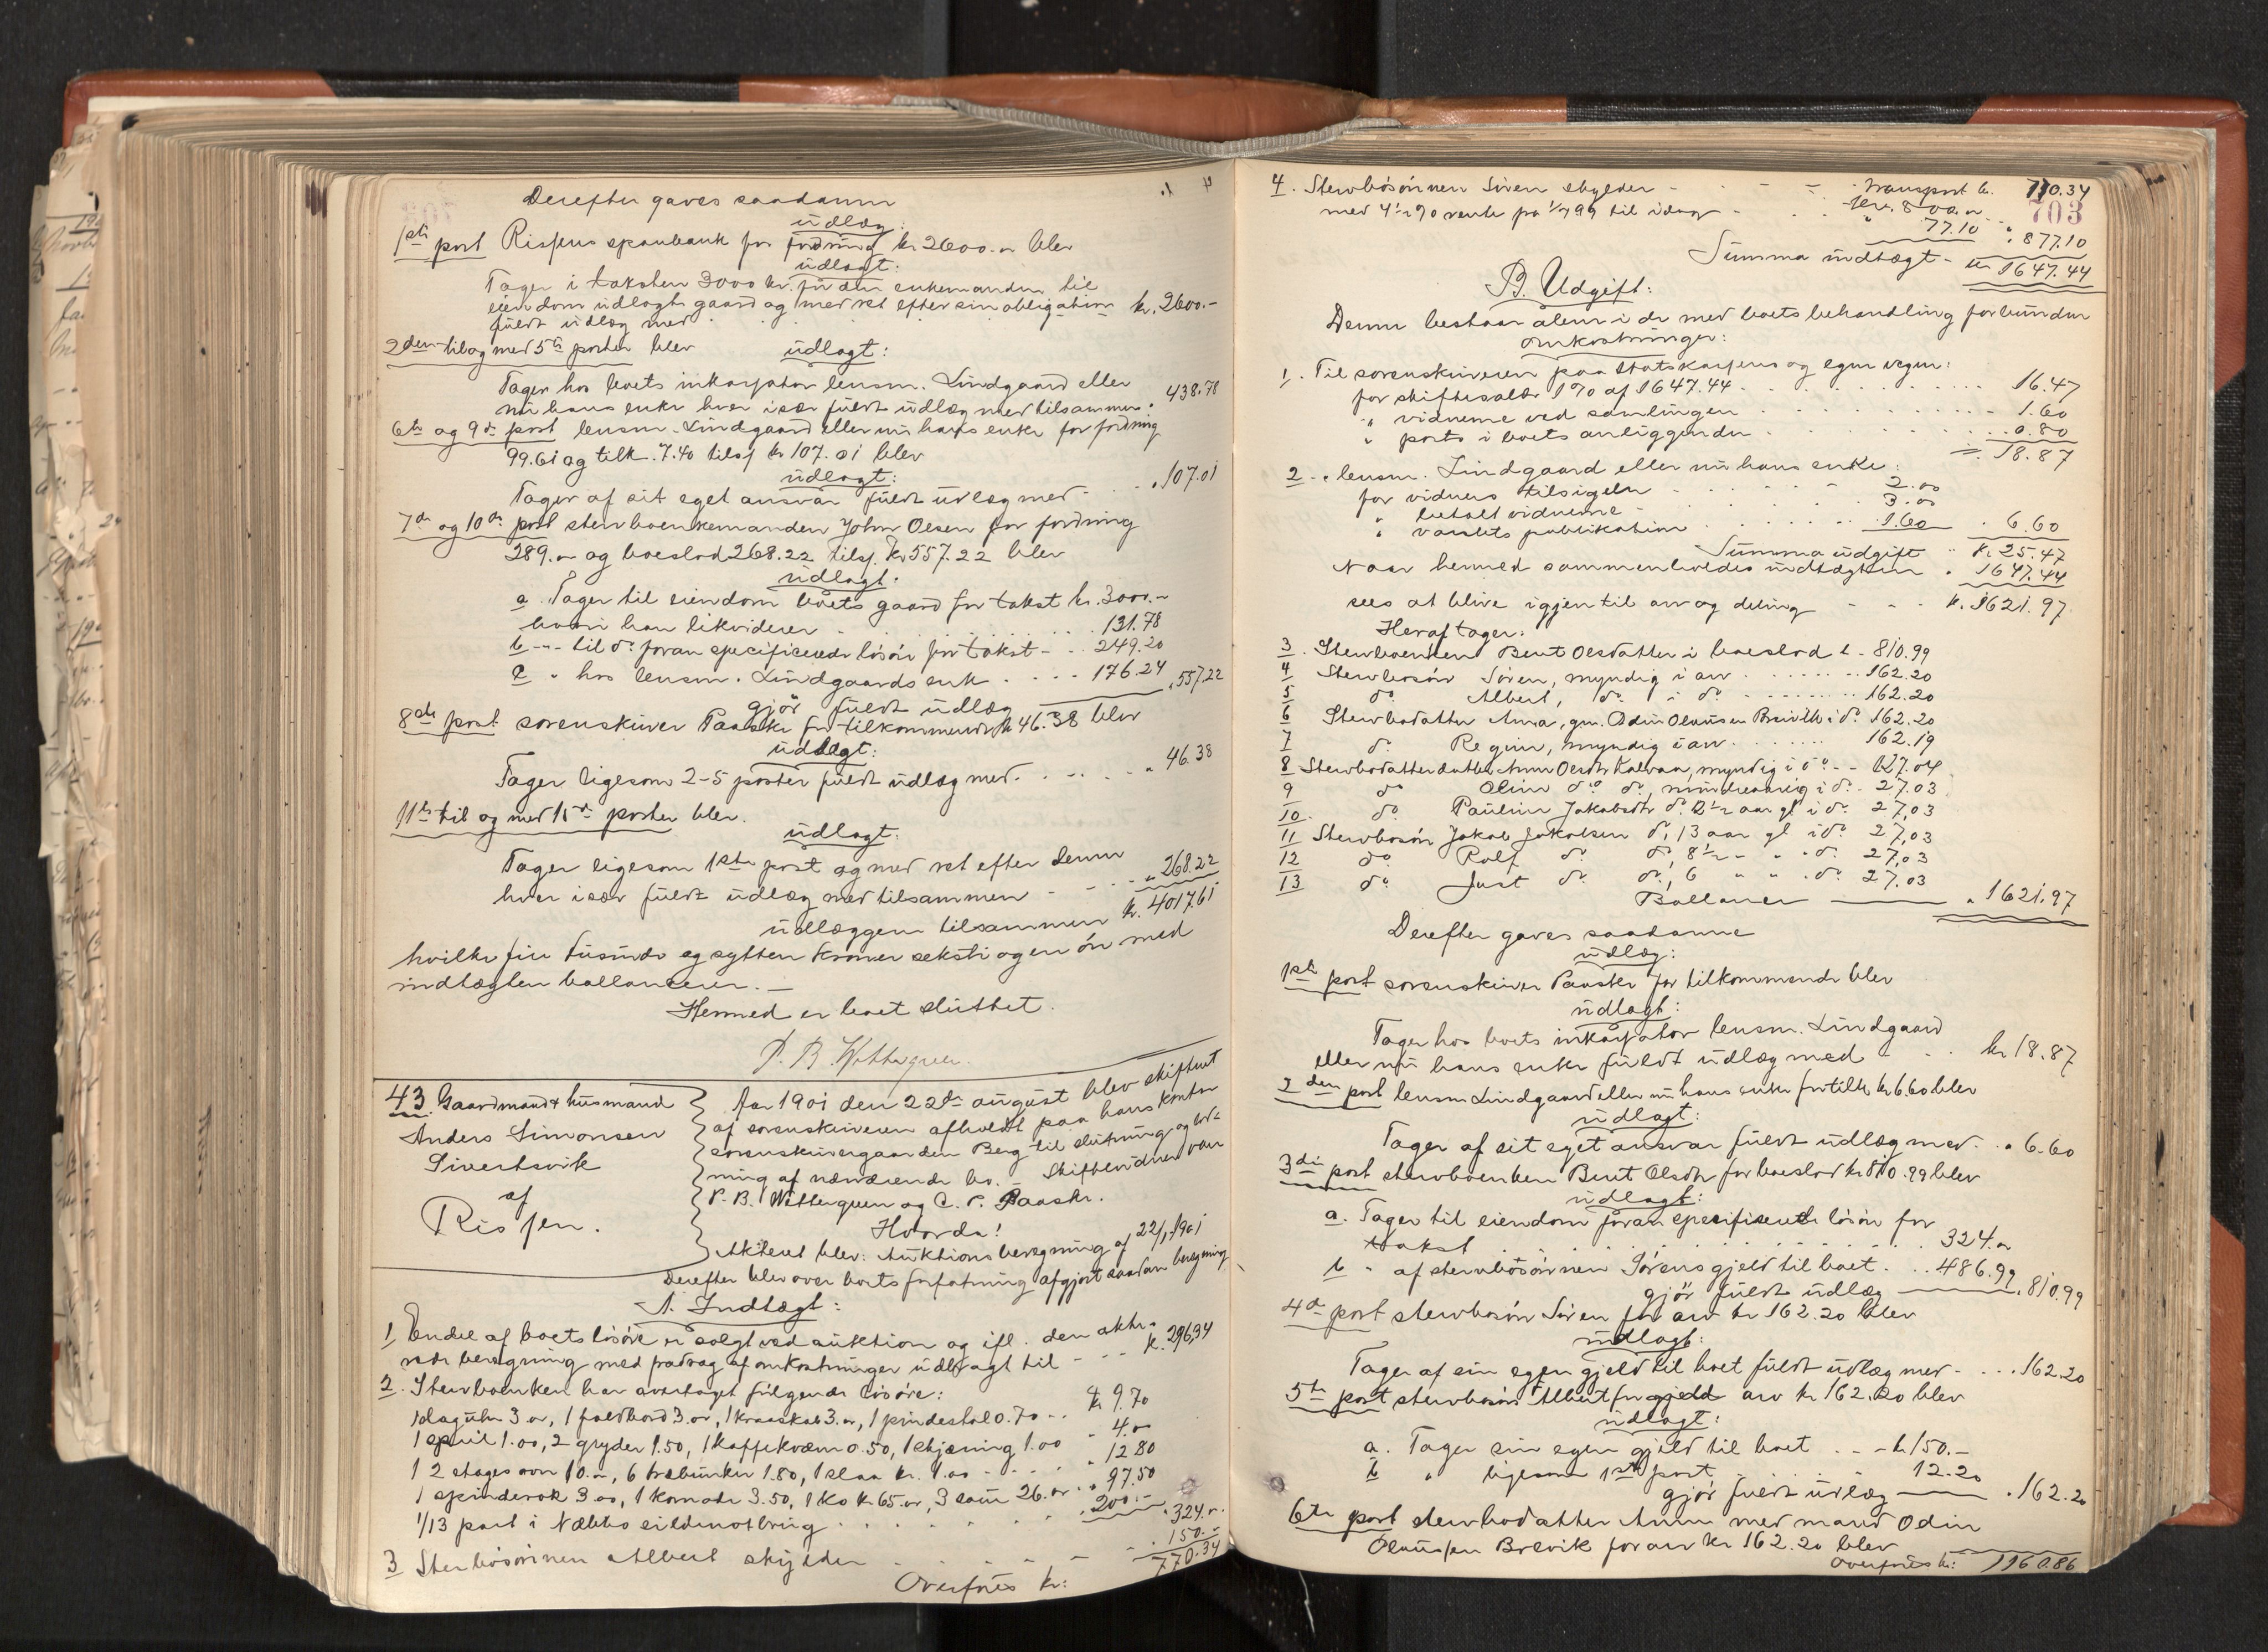 Derefter gaves saadanne
udlæg:
1ste post Rissens sparebank for fordring kr 2600.- blev
udlagt:
Tager i taksten 3000 kr. for den enkemanden til
eiendom udlagte gaard og med ret efter sin obligation
fuldt udlæg med . kr. 2600.-
2den til og med 5te poster blev udlagt:
Tager hos boets inkassator lensm. Lindgaard eller
nu hans enke hver især fuldt udlæg med tilsammen . 438.78
6te og 9de post lensm. Lindgaard eller nu hans enke for fordring
99.61 og tilk. 7.40 tils. kr 107.01 blev
udlagt:
Tager af sit eget ansvar fuldt udlæg med - . 107.01
7de og 10de post stervboenkemanden John Olsen for fordring
289.- og boeslod 268.22 tils. kr 557.22 blev
udlagt.
a. Tager til eiendom boets gaard for takst kr. 3000.-
hvori han likviderer . . . 131.78
b -"- til do foran specificerede løsøre for takst - . 249.20
c " hos lensm. Lindgaards enke . . . . 176.24
gjør fuldt udlæg . 557.22
8de post sorenskriver Paaske for tilkommende kr 46.38 blev
udlagt:
Tager ligesom 2-5 poster fuldt udlæg med . . . . . 46.38
11te til og med 15de poster blev.
udlagt:
Tager ligesom 1ste post og med ret efter denne
hver især fuldt udlæg med tilsammen - - - . 268.22
udlæggene tilsammen kr. 4017.61
hvilke fire tusinde og sytten kroner seksti og en øre med
indtægten ballancerer. -
Hermed er boet sluttet.
P. B. Wettergreen.
43. Gaardmand & husmand
Anders Simonsen
Sivertsvik
af
Rissen.
Aar 1901 den 22de august blev skifteret
af sorenskriveren afholdt paa hans kontor
sorenskrivergaarden Berg til slutning og
ning af nærværende bo. - Skiftevidner var
P. B. Wettergreen og C. P. Paaske.
Hvorda!
Akteret blev: Auktionsberegning af 22/ 1901
Derefter blev over boets forfatning afgjort saadan beregning
A. Indtægt:
1. Endel af boets løsøre er solgt ved auktion og ifl. den akte-
rede beregning med fradrag af omkostninger udbragt til - - - k. 296,34
2. Stervboenken har overtaget følgende løsøre:
1 slaguhr 3.00, 1 foldbord 3.00, 1 kraaskab 3.00, 1 pindestol 0.70 . . . kr 9.70
1 speil 1.00, 2 gryder 1.50, 1 kaffekværn 0.50, 1 skjæring 1.00 " 4.00
1 2 etages ovn 10.-, 6 træbunker 1.80, 1 slaa kr. 1.00 - - - . 12.80
1 spinderok 3.00, 1 komode 3.50, 1 ko kr 65.00, 3 sauer 26.00 . . 97.50
1/13 part i Næbbo sildenotbrug . . . . . . . 200.- . 324.-
3 Stervbosønnen Albert skylder - - - - - . 150.-
Overføres kr: 770.34
4. Stervbosønnen Søren skylder - - - - Transport kr. 770.34
703
med 4½ % rente fra 1/ 99 til idag - . . kr. 800.-
" 77.10 " 877.10
Summa indtægt - kr 1647.44
B. Udgift:
Denne bestaar alene i de med boets behandling forbundne
omkostninger:
1. Til sorenskriveren paa statskassens og egne vegne:
for skiftesalær 1% af 1647.44 . . . . . . . . 16.47
" vidnerne ved samlingen . . . . . . . . 1.60
" porto i boets anliggender . . . . . . . . 0.80
= 18.87
2. " lensm. Lindgaard eller nu hans enke:
for vidners tilsigelse . . . . . . 2.00
" betalt vidnerne - . . . . . 3.00
" varslets publikation . . . . . . 1.60 . 6.60
Summa udgift " kr. 25.47
Naar hermed sammenholdes indtægten . 1647.44
sees at blive igjen til arv og deling - - - k. 1621.97
Heraf tager:
3. Stervboenken Berit Olesdatter i boeslod k. 810.99
4 Stervbosøn Søren, myndig i arv . . . . . . 162.20
5 do Albert, do i do . . . . . . . . 162.20
6 Stervbodatter Anna, gm. Odin Olausen Brevik i do 162.20
7 do Regine, myndig i arv . . . . . . 162.19
8 Stervbodatterdatter Anne Olesdtr Kalvaa, myndig i do - - 27.04
9 do Oline do do, mindreaarig i do - 27.03
10. do Pauline Jakobsdtr do 12½ aar gl i do 27,03
11 Stervbosøn Jakob Jakobsen do, 13 aar gl i do 27,03
12 do Rolf do do, 8½ " " " do 27,03
13 do Just do do, 6 " " " do 27.03
Ballance . 1621.97
Derefter gaves saadanne
udlæg:
1ste post sorenskriver Paaske for tilkommende blev
udlagt:
Tager hos boets inkassator lensm. Lindgaard
eller nu hans enke fuldt udlæg med - . . kr 18.87
2den post lensm Lindgaard eller nu hans enke for tilk. kr 6.60 blev
udlagt:
Tager af sit eget ansvar fuldt udlæg med . . 6.60
3die post stervboenken Berit Olsdtr for boeslod kr 810.99 blev
udlagt:
a. Tager til eiendom foran specificerede løsøre for
takst . . . . . . . . . . 324.-
b " af stervbosønnen Sørens gjeld til boet . . . 486.99
gjør fuldt udlæg . 810.99
4de post stervbosøn Søren for arv kr 162.20 blev
udlagt:
Tager af sin egen gjeld til boet fuldt udlæg med . . . . 162.20
5te post stervbosøn Albert for gjeld arv kr 162.20 blev
udlagt:
a. Tager sin egen gjeld til boet . . - kr 150.-
b " ligesom 1ste post . . 12.20
gjør fuldt udlæg . 162.20
6te post stervbodatter Anne med mand Odin
Olaussen Brevik for arv kr 162.20 blev
Overføres kr: 1160.86